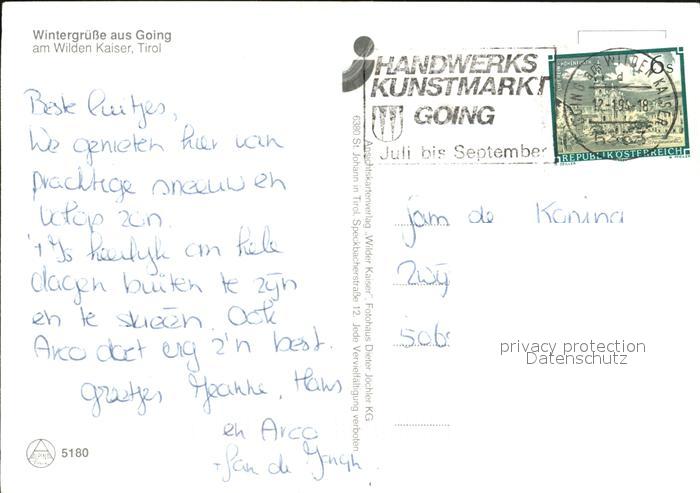 Wintergrüße aus Going
am Wilden Kaiser, Tirol
Beste luitjes,
We genieten hier van
prachtige sneeuw en
volop zon.
't Is heerlijk om hele
dagen buiten te zijn
en te skieën. Ook
Arco doet erg z'n best.
Groetjes Jeanne, Hans
en Arco
5180
Ansichtskartenverlag „Wilder Kaiser", Fotohaus Dieter Jöchler KG
6380 St. Johann in Tirol, Speckbacherstraße 12. Jede Vervielfältigung verboten
HANDWERKS
KUNSTMARKT
GOING
Juli bis September
6 S
12-1.99-18
6353
REPUBLIK ÖSTERREICH
fam de Kanina
privacy protection
Datenschutz